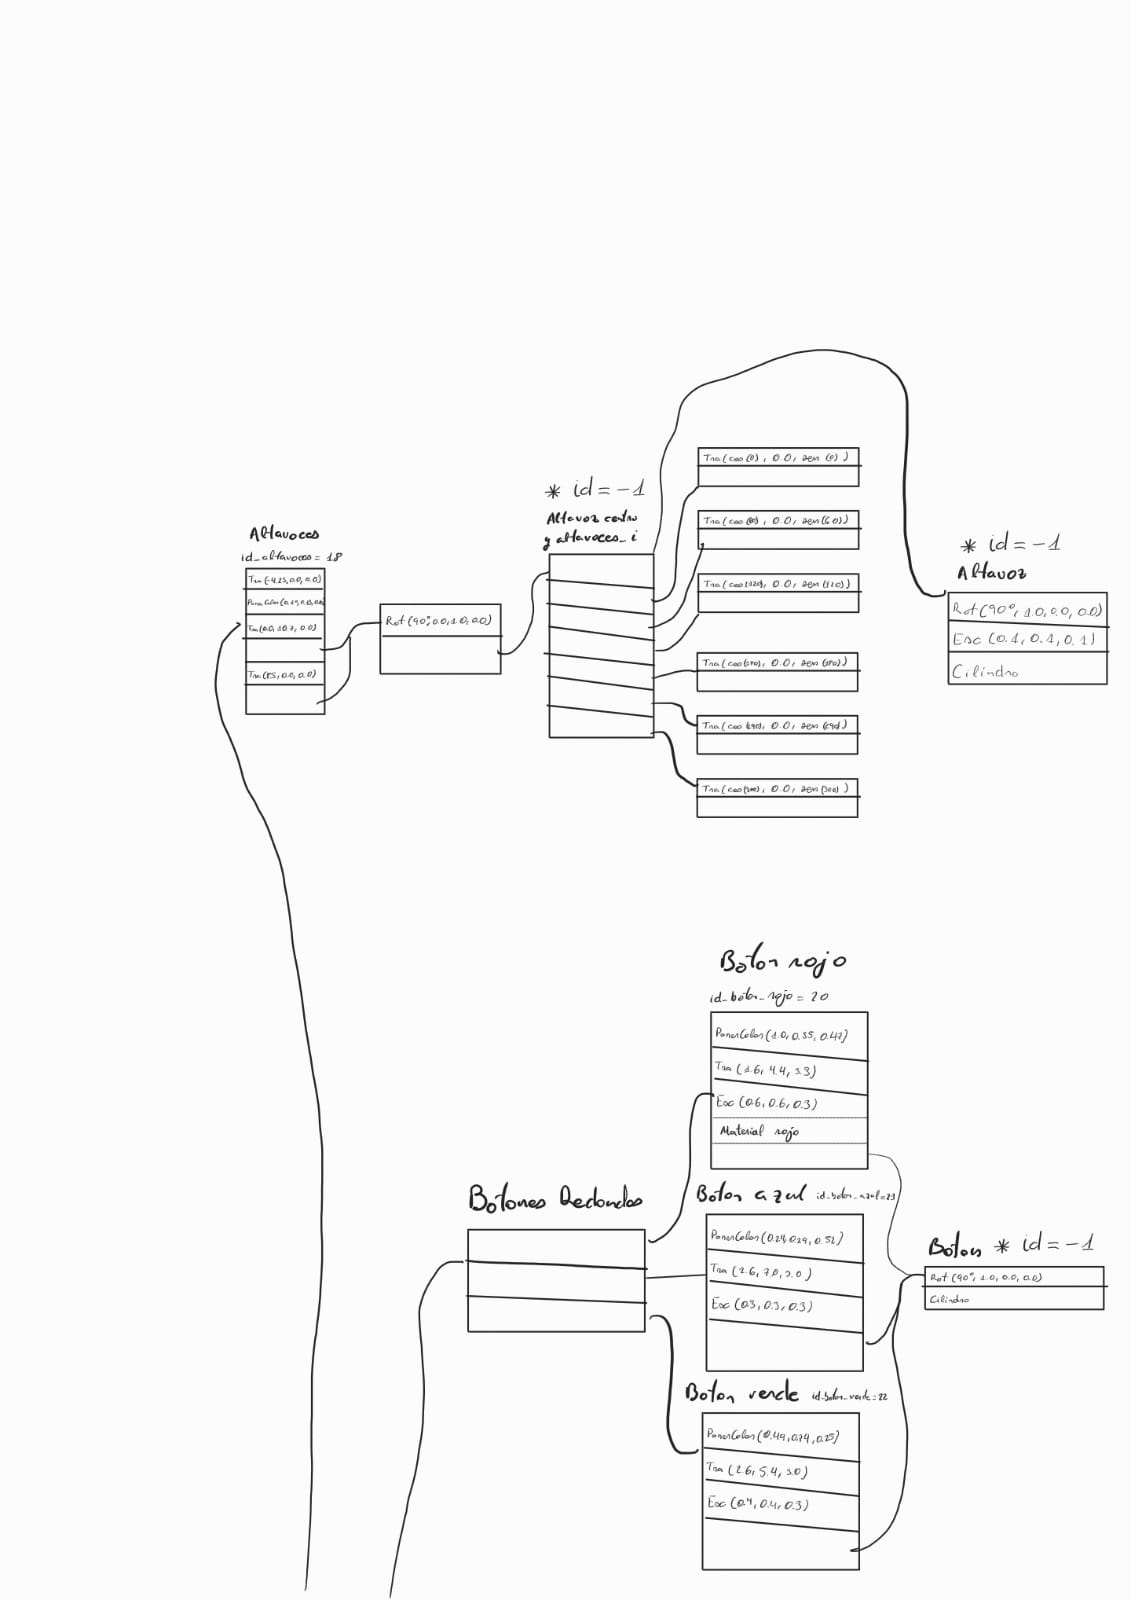 Altavoces
id_altavoces = 18
Tra(-4.25, 0.0, 0.0)
PonerColor(
Tra(0.0, 10.7, 0.0)
Tra(8.5, 0.0, 0.0)
Rot(90º, 0.0, 1.0, 0.0)
* id = -1
Altavoz centro
y altavoces_i
Tra(cos(0), 0.0, sen(0))
Tra(cos(60), 0.0, sen(60))
Tra(cos(120), 0.0, sen(120))
Tra(cos(180), 0.0, sen(180))
Tra(cos(240), 0.0, sen(240))
Tra(cos(300), 0.0, sen(300))
* id = -1
Altavoz
Rot(90º, 1.0, 0.0, 0.0)
Esc (0.1, 0.1, 0.1)
Cilindro
Boton rojo
id_boton_rojo = 20
PonerColor(1.0, 0.35, 0.47)
Tra (1.6, 4.4, 3.3)
Esc (0.6, 0.6, 0.3)
Material rojo
Botones Redondos
Boton azul id_boton_azul=
PonerColor(0.24, 0.29, 0.52)
Tra (2.6, 7.0, 3.0)
Esc (0.3, 0.3, 0.3)
Boton * id = -1
Rot (90º, 1.0, 0.0, 0.0)
Cilindro
Boton verde id_boton_verde = 22
PonerColor(0.49, 0.74, 0.25)
Tra (2.6, 5.4, 3.0)
Esc (0.4, 0.4, 0.3)